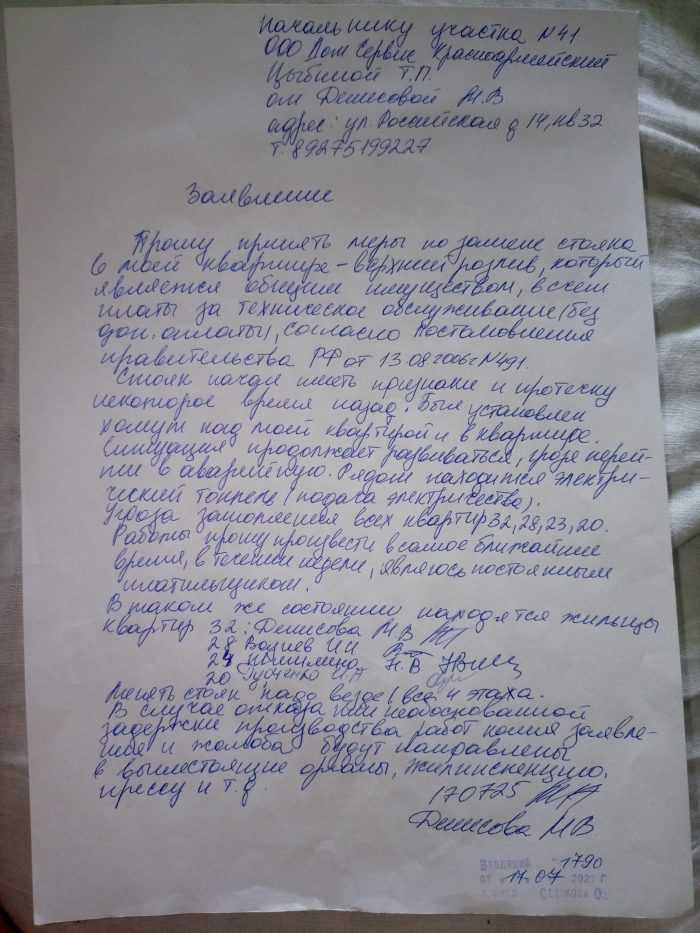 Начальнику участка N41
ООО Дом Сервис Красноармейский
Цыбиной Т.П.
от Денисовой М.В
адрес: ул. Российская д 14, кв 32
т. 89275199227
Заявление
Прошу принять меры по замене стояка
в моей квартире – верхний розлив, который
является общим имуществом, в счет
платы за техническое обслуживание (без
доп. оплаты), согласно Постановления
правительства РФ от 13.08.2006г N491.
Стояк начал иметь признаки и протечку
некоторое время назад. Был установлен
хомут над моей квартирой и в квартире.
Ситуация продолжает развиваться, грозя перей-
ти в аварийную. Рядом находится электри-
ческий тоннель (подача электричества).
Угроза затопления всех квартир 32, 28, 23, 20.
Работы прошу произвести в самое ближайшее
время, в течении недели, являюсь постоянным
платильщиком.
В таком же состоянии находятся жильцы
квартир 32: Денисова МВ
28
24 Н.В
20
Менять стояк надо везде (все 4 этажа.
В случае отказа или необоснованной
задержки производства работ копия заявле-
ния и жалобы будут направлены
в вышестоящие органы, жилинспекцию,
прессу и т.д.
170725
Денисова МВ
Входящий 1790
от 17.07 202 г